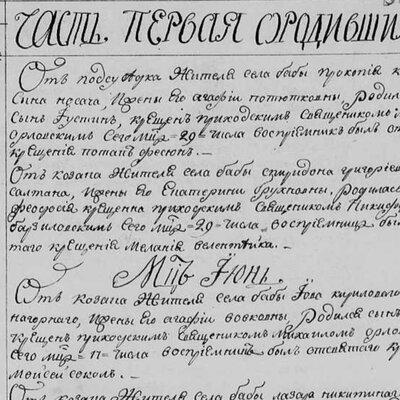 ЧАСТЬ. ПЕРВАЯ ОРОДИВШИ
Отъ подсусѣдка жителя села бабы прокопія к
Сина носача, Ижены Его агафіи потютковны, Родил
Сынъ Густинъ, крещенъ приходскимъ Священикомъ
орловскимъ Сего Мця = 29 = числа воспріемникъ былъ от
крещенія потапъ фесюнъ. —
Отъ козака Жителя села бабы спиридона григоріе
Салтана, Ижены Его Екатерини Родилась
феодосія крещенна приходскимъ Священикомъ Никиф
барзиловскимъ Сего Мця = 29 = числа воспріемница бы
таго крещенія Меланія —
Мцъ Іюнь.
Отъ козака Жителя села бабы Іова кириловаго
нагорнаго, Ижены Его агафіи вовковны, Родился сынъ
крещенъ приходскимъ Священикомъ Михаиломъ орло
Сего Мця = 11 = числа воспріемникъ былъ отсвятаго кр
Моисей соколъ. —
Отъ козака Жителя села бабы лазаря никитина